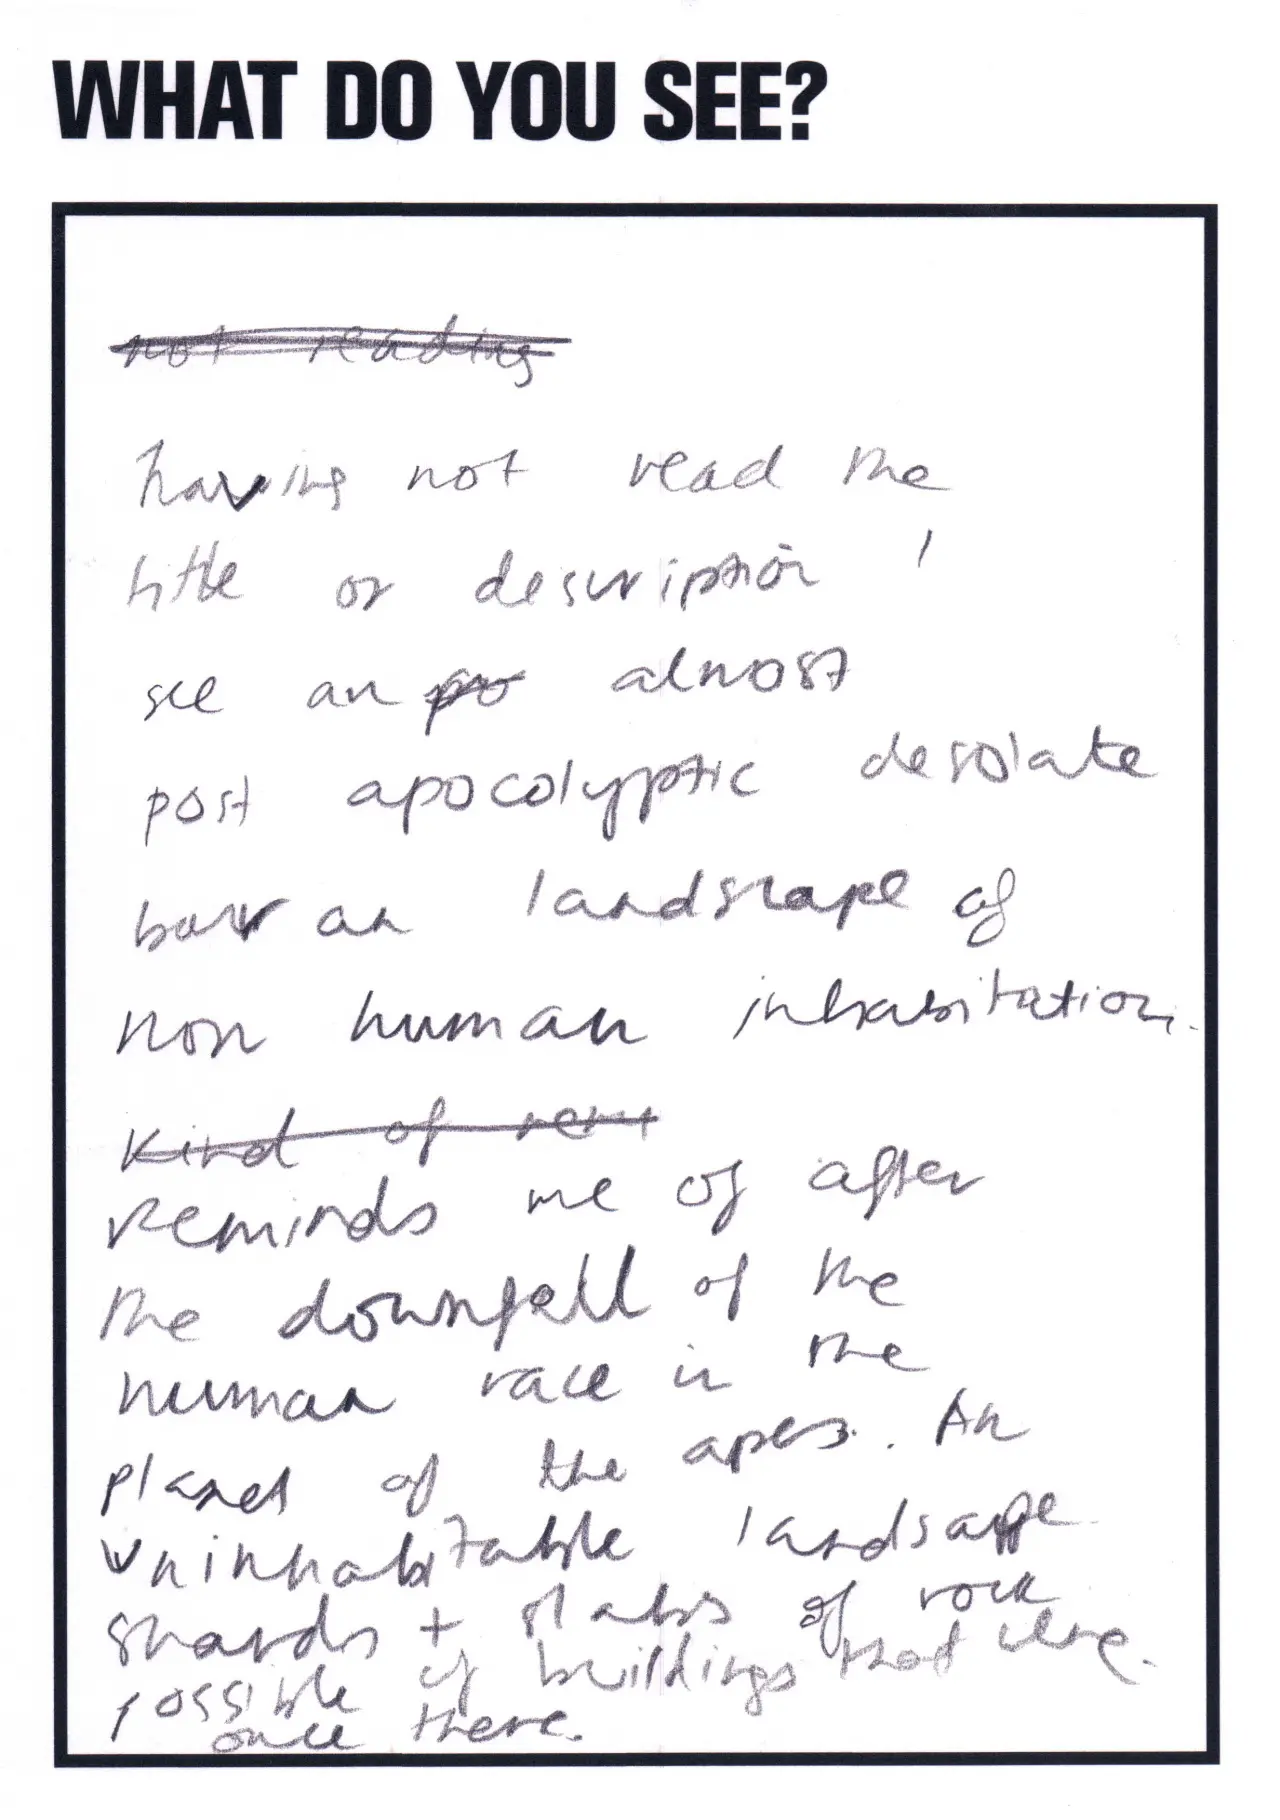 WHAT DO YOU SEE?
not reading
having not read the
title or description I
see an po almost
post apocolyptic desolate
an landscape of
non human inhabitation.
Kind of rem
Reminds me of after
the downfall of the
human race in the
planet of the apes. An
uninhabitable landsape
shards + slabs of rock
possible of buildings that were
once there.